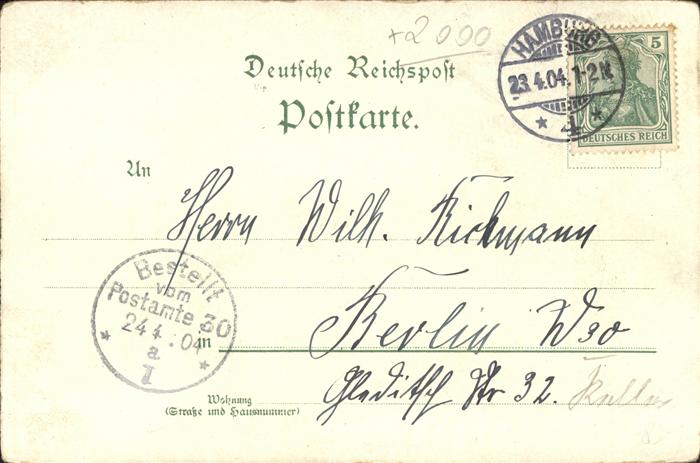 +2000
HAMBURG
23.4.04.1-2N.
* 1 *
5
DEUTSCHES REICH
Deutsche Reichspost
Postkarte.
An
Herrn Wilh. Rickmann
Bestellt
vom
Postamte 30
24 4. 04
a
I
in
Berlin W30
Gleditsch Str 32.
Wohnung
(Straße und Hausnummer)